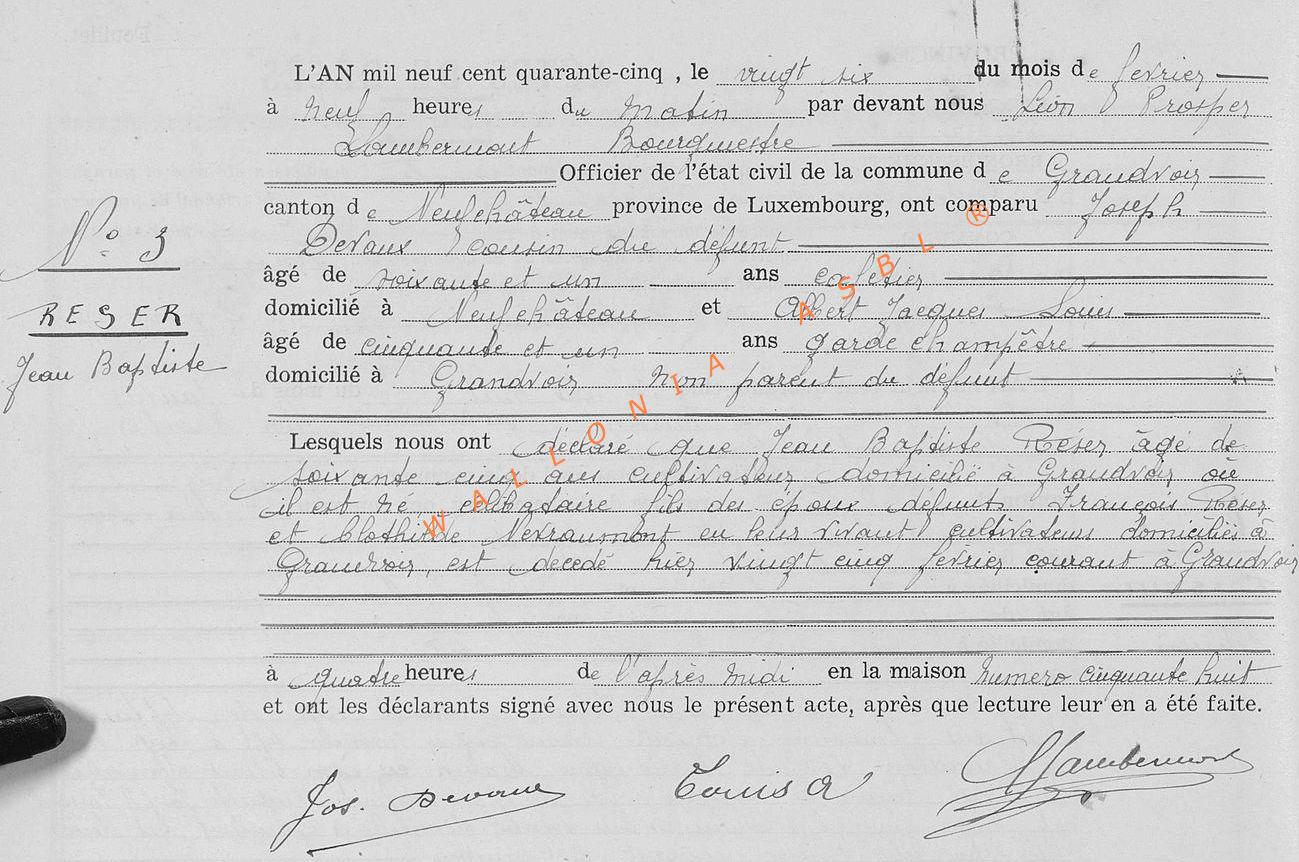 L'AN mil neuf cent quarante-cinq, le vingt six du mois de fevrier
à neuf heures du matin par devant nous Léon Prosper
Lambermont Bourgmestre
Officier de l'état civil de la commune de Grandvoir
canton de Neufchâteau province de Luxembourg, ont comparu Joseph
Devaux cousin du défunt
âgé de soixante et un ans cafetier
domicilié à Neufchâteau et Albert Jacques Louis
âgé de cinquante et un ans garde champêtre
domicilié à Grandvoir non parent du défunt
N° 3
RESER
Jean Baptiste
Lesquels nous ont déclaré que Jean Baptiste Réser âgé de
soixante cinq ans cultivateur domicilié à Grandvoir où
il est né, célibataire fils des époux défunts François Réser
et Clothilde Nevraumont en leur vivant cultivateurs domiciliés à
Grandvoir, est décédé hier vingt cinq fevrier courant à Grandvoir
à quatre heures de l'après midi en la maison numero cinquante huit
et ont les déclarants signé avec nous le présent acte, après que lecture leur en a été faite.
Jos. Devaux Louis A Lambermont
WALLONIA ASBL ®